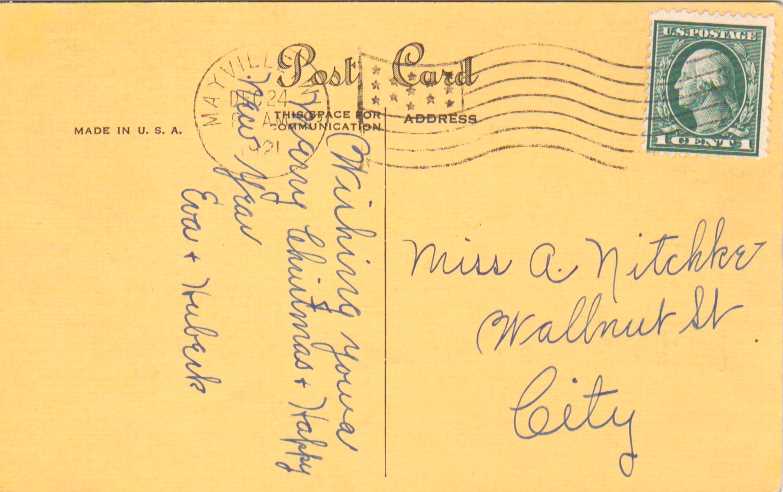 Post Card
THIS SPACE FOR
COMMUNICATION
ADDRESS
MADE IN U. S. A.
U.S. POSTAGE
1 CENT 1
MAYVILLE
DEC 24
AM
1921
Wishing you a
Merry Christmas + Happy
New Year
Eva + Hubert
Miss A. Nitchke
Wallnut St
City